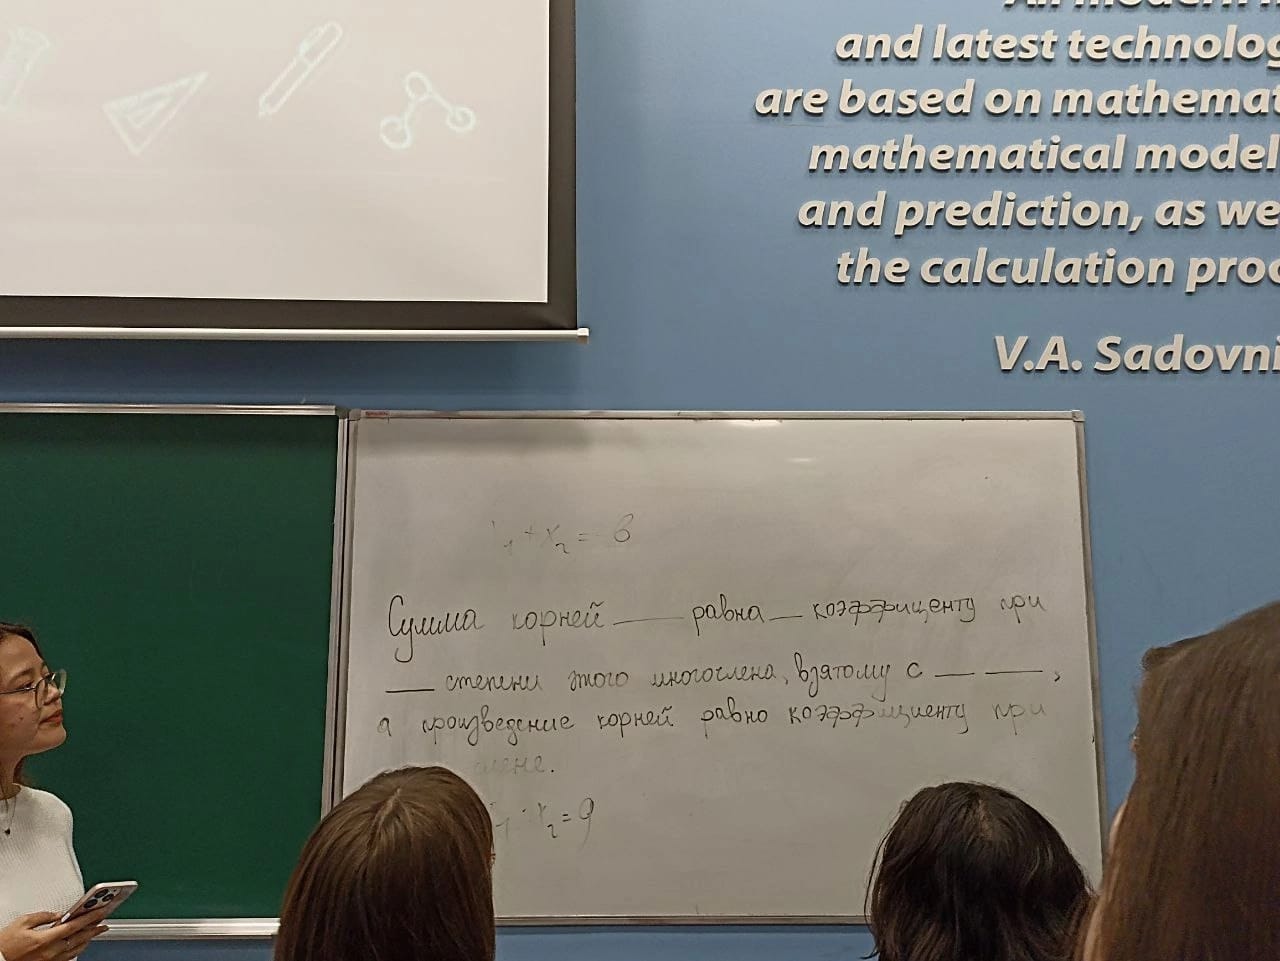 and latest technolog
are based on mathemat
mathematical model
and prediction, as we
the calculation proc
V.A. Sadovni
+ x₂ = 6
Сумма корней ___ равна __ коэффиценту при
___ степени этого многочлена, взятому с ___ ___,
а произведение корней равно коэффициенту при
члене.
x₂ = q